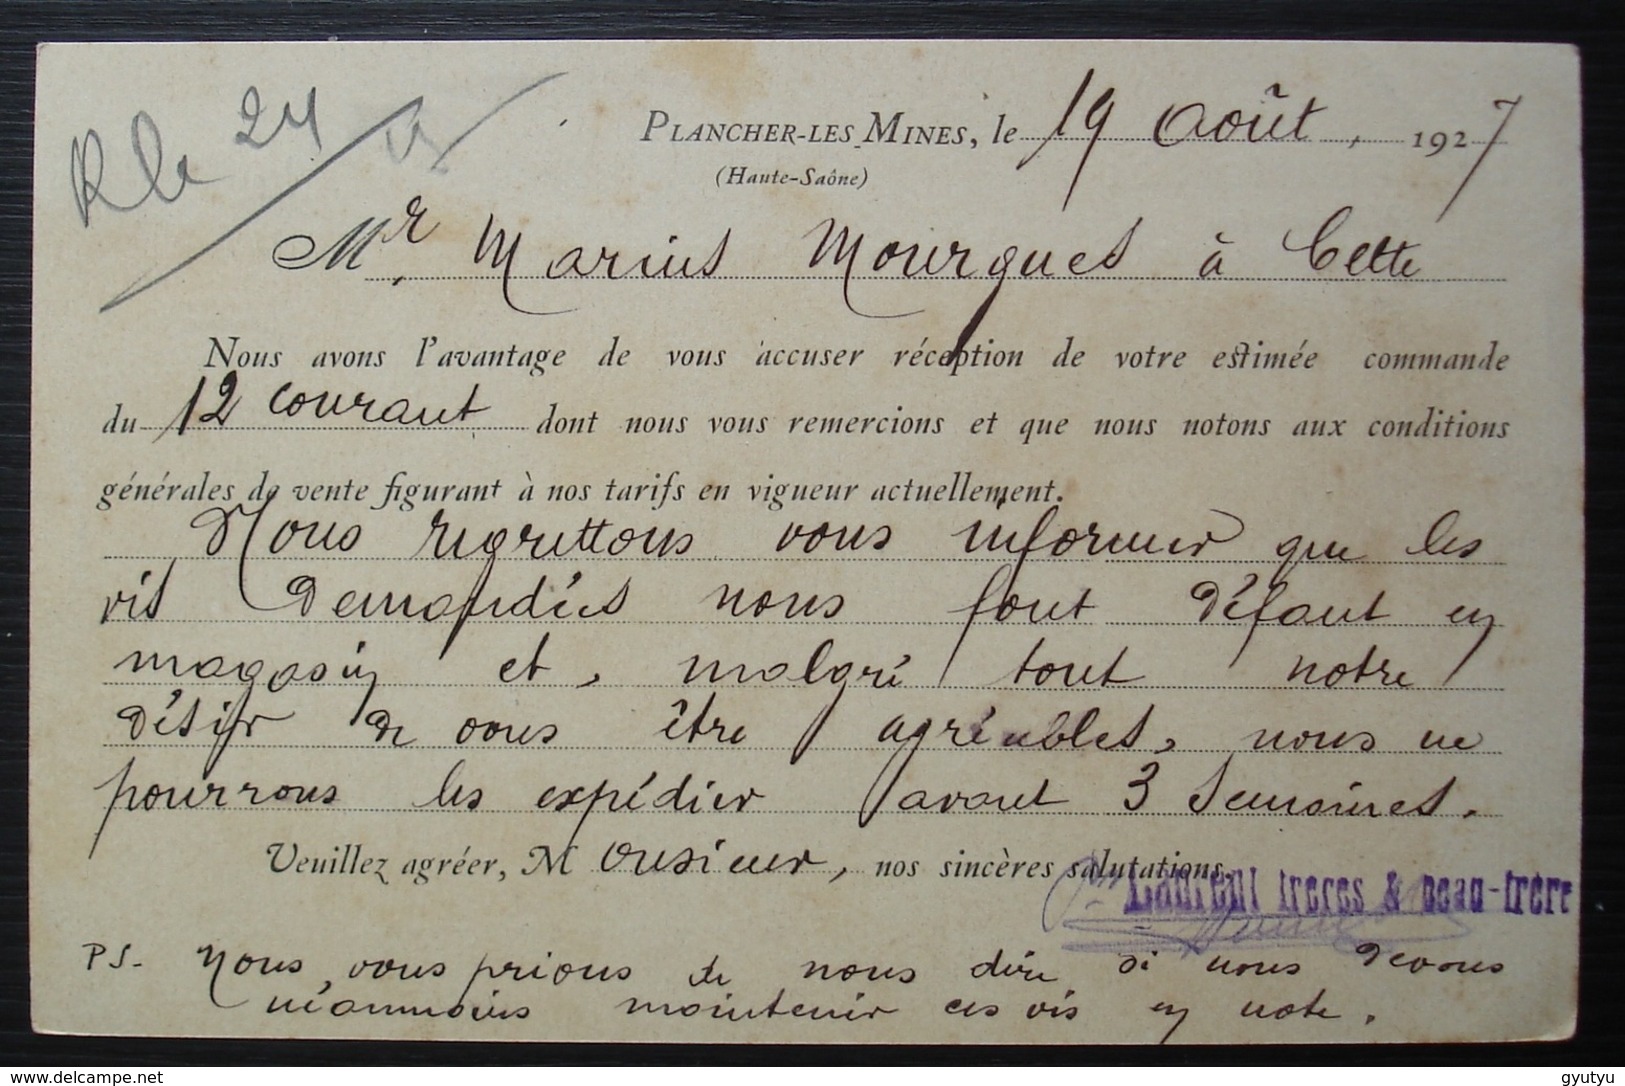 Rle 24
PLANCHER-LES MINES, le 19 Août, 1927
(Haute-Saône)
Mr. Marius Mourgues à Cette
Nous avons l'avantage de vous accuser réception de votre estimée commande
du 12 courant dont nous vous remercions et que nous notons aux conditions
générales de vente figurant à nos tarifs en vigueur actuellement.
Nous regrettons vous informer que les
vis demandées nous font défaut en
magasin et, malgré tout notre
désir de vous être agréables, nous ne
pourrons les expédier avant 3 semaines.
Veuillez agréer, Monsieur, nos sincères salutations.
Laurent frères & beau-frère
PS- Nous vous prions de nous dire si nous devons
néanmoins maintenir ces vis en note.
delcampe.net
gyutyu